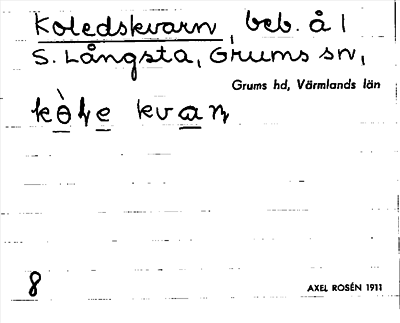 Koledskvarn, beb. å 1
S. Långsta, Grums sn,
Grums hd, Värmlands län
8
AXEL ROSÉN 1911